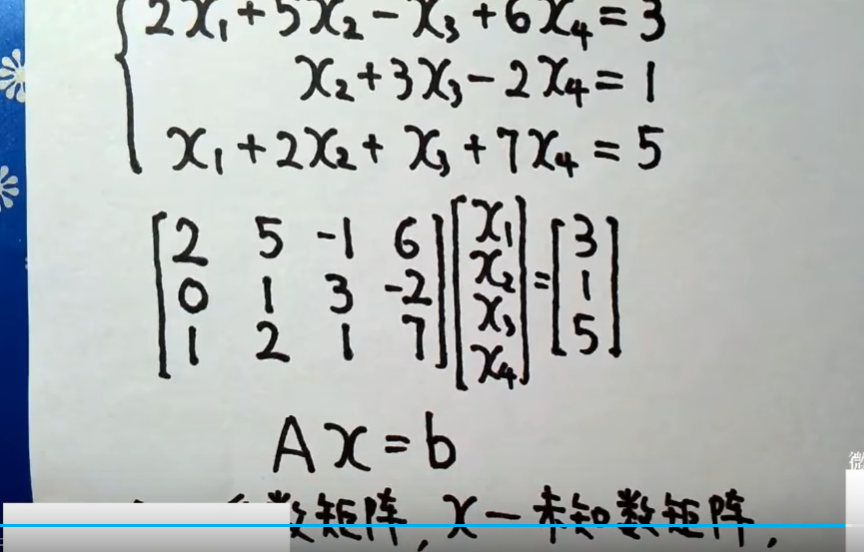 2x₁+5x₂-x₃+6x₄=3
x₂+3x₃-2x₄=1
x₁+2x₂+x₃+7x₄=5
[2 5 -1 6] [x₁] [3]
[0 1 3 -2] [x₂] = [1]
[1 2 1 7] [x₃] [5]
[x₄]
Ax=b
数矩阵, x-未知数矩阵,
微